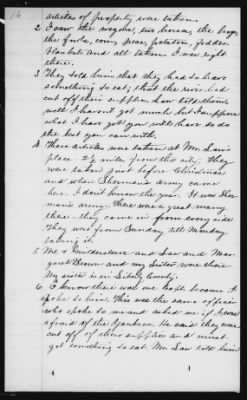 14
articles of property were taken.
2 I saw the wagons, two horses, the hogs
the fowls, corn, peas, potatoes, fodder
blankets and all taken I was right
there.
3 They told him that they had to have
something to eat; that the river had
cut off their supplies. Law told them,
well I haven't got much but I suppose
what I have got you will have so do
the best you can with.
4 These articles was taken at Mr. Law's
place - 2½ miles from the city; They
were taken just before Christmas
and when Sherman's army came
here. I don't know the year. It was Sher
mans army. There was a great many
there - they came in from every side
They was from Sunday till Monday
taking it.
5 Me & and Law and Mar
garet Brown and my Sister, were there
My sister is in County.
6 I know there was one Capt. because I
spoke to him. This was the same officer
who spoke to me and asked me if I was
afraid of the Yankees. He said they was
cut off of their supplies and must
get something to eat. Mr. Law told him